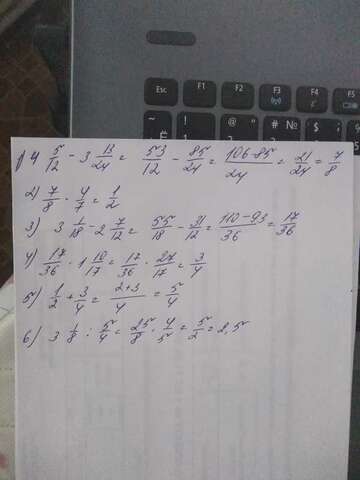 Esc F1 F2 F3 F4 F5
1) 4 5/12 - 3 13/24 = 53/12 - 85/24 = 106-85/24 = 21/24 = 7/8
2) 7/8 · 4/7 = 1/2
3) 3 1/18 - 2 7/12 = 55/18 - 31/12 = 110-93/36 = 17/36
4) 17/36 · 1 10/17 = 17/36 · 27/17 = 3/4
5) 1/2 + 3/4 = 2+3/4 = 5/4
6) 3 1/8 : 5/4 = 25/8 · 4/5 = 5/2 = 2,5